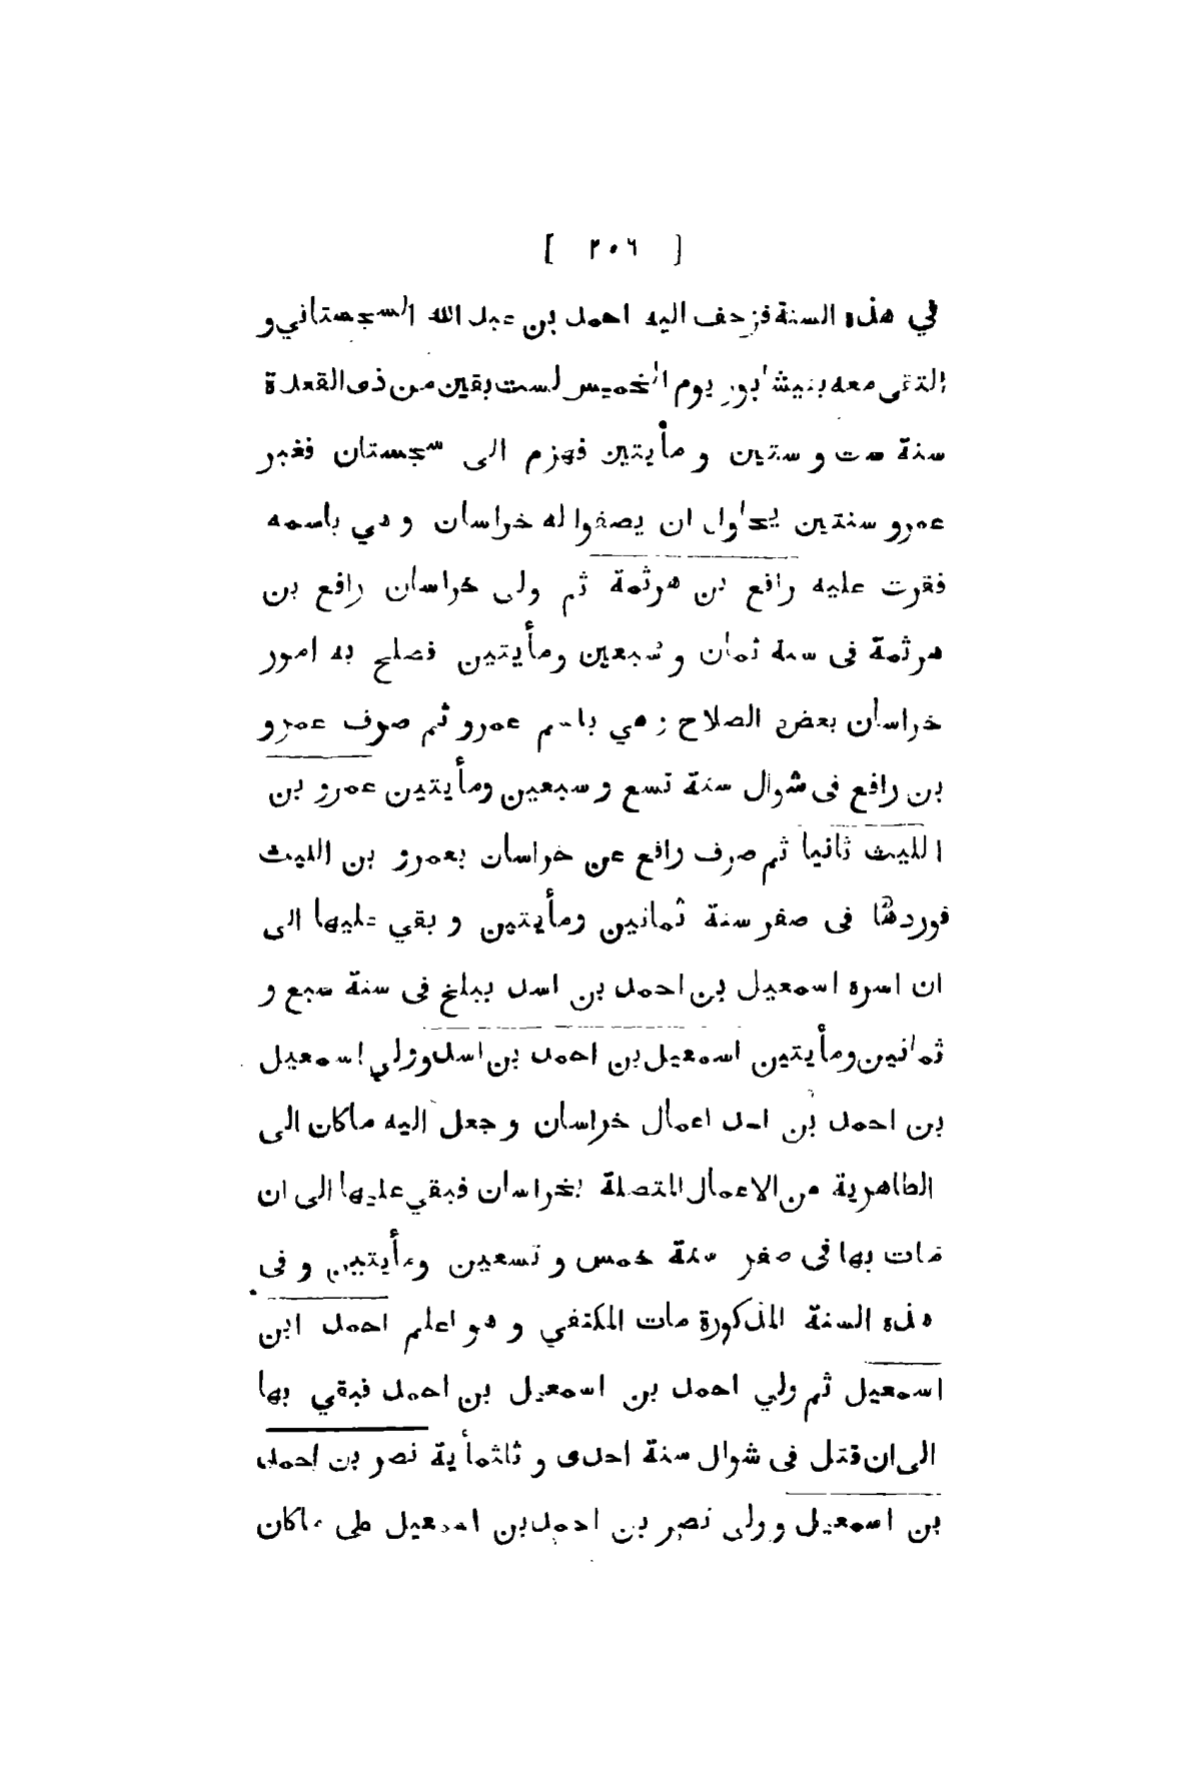 [ ٢٠٦ ]
في هذه السنة فزحف اليه احمد بن عبد الله السجستاني و
التقى معه بنيشابور يوم الخميس لست بقين من ذى القعدة
سنة ست و ستين و مأيتين فهزم الى سجستان فغبر
عمرو سنتين يحاول ان يصفوا له خراسان و هي باسمه
فقرت عليه رافع بن هرثمة ثم ولى خراسان رافع بن
هرثمة فى سنة ثمان و سبعين ومأيتين فصلح به امور
خراسان بعض الصلاح و هي باسم عمرو ثم صرف عمرو
بن رافع فى شوال سنة تسع و سبعين ومأيتين عمرو بن
الليث ثانيا ثم صرف رافع عن خراسان بعمرو بن الليث
فوردها فى صفر سنة ثمانين ومأيتين و بقي عليها الى
ان اسره اسمعيل بن احمد بن اسد ببلخ فى سنة سبع و
ثمانين ومأيتين اسمعيل بن احمد بن اسد وولي اسمعيل
بن احمد بن اسد اعمال خراسان و جعل اليه ماكان الى
الطاهرية من الاعمال المتصلة بخراسان فبقي عليها الى ان
مات بها فى صفر سنة خمس و تسعين ومأيتين و فى
هذه السنة المذكورة مات المكتفي و هو اعلم احمد ابن
اسمعيل ثم ولي احمد بن اسمعيل بن احمد فبقي بها
الى ان قتل فى شوال سنة احدى و ثلثمأية نصر بن احمد
بن اسمعيل وولى نصر بن احمد بن اسمعيل على ماكان